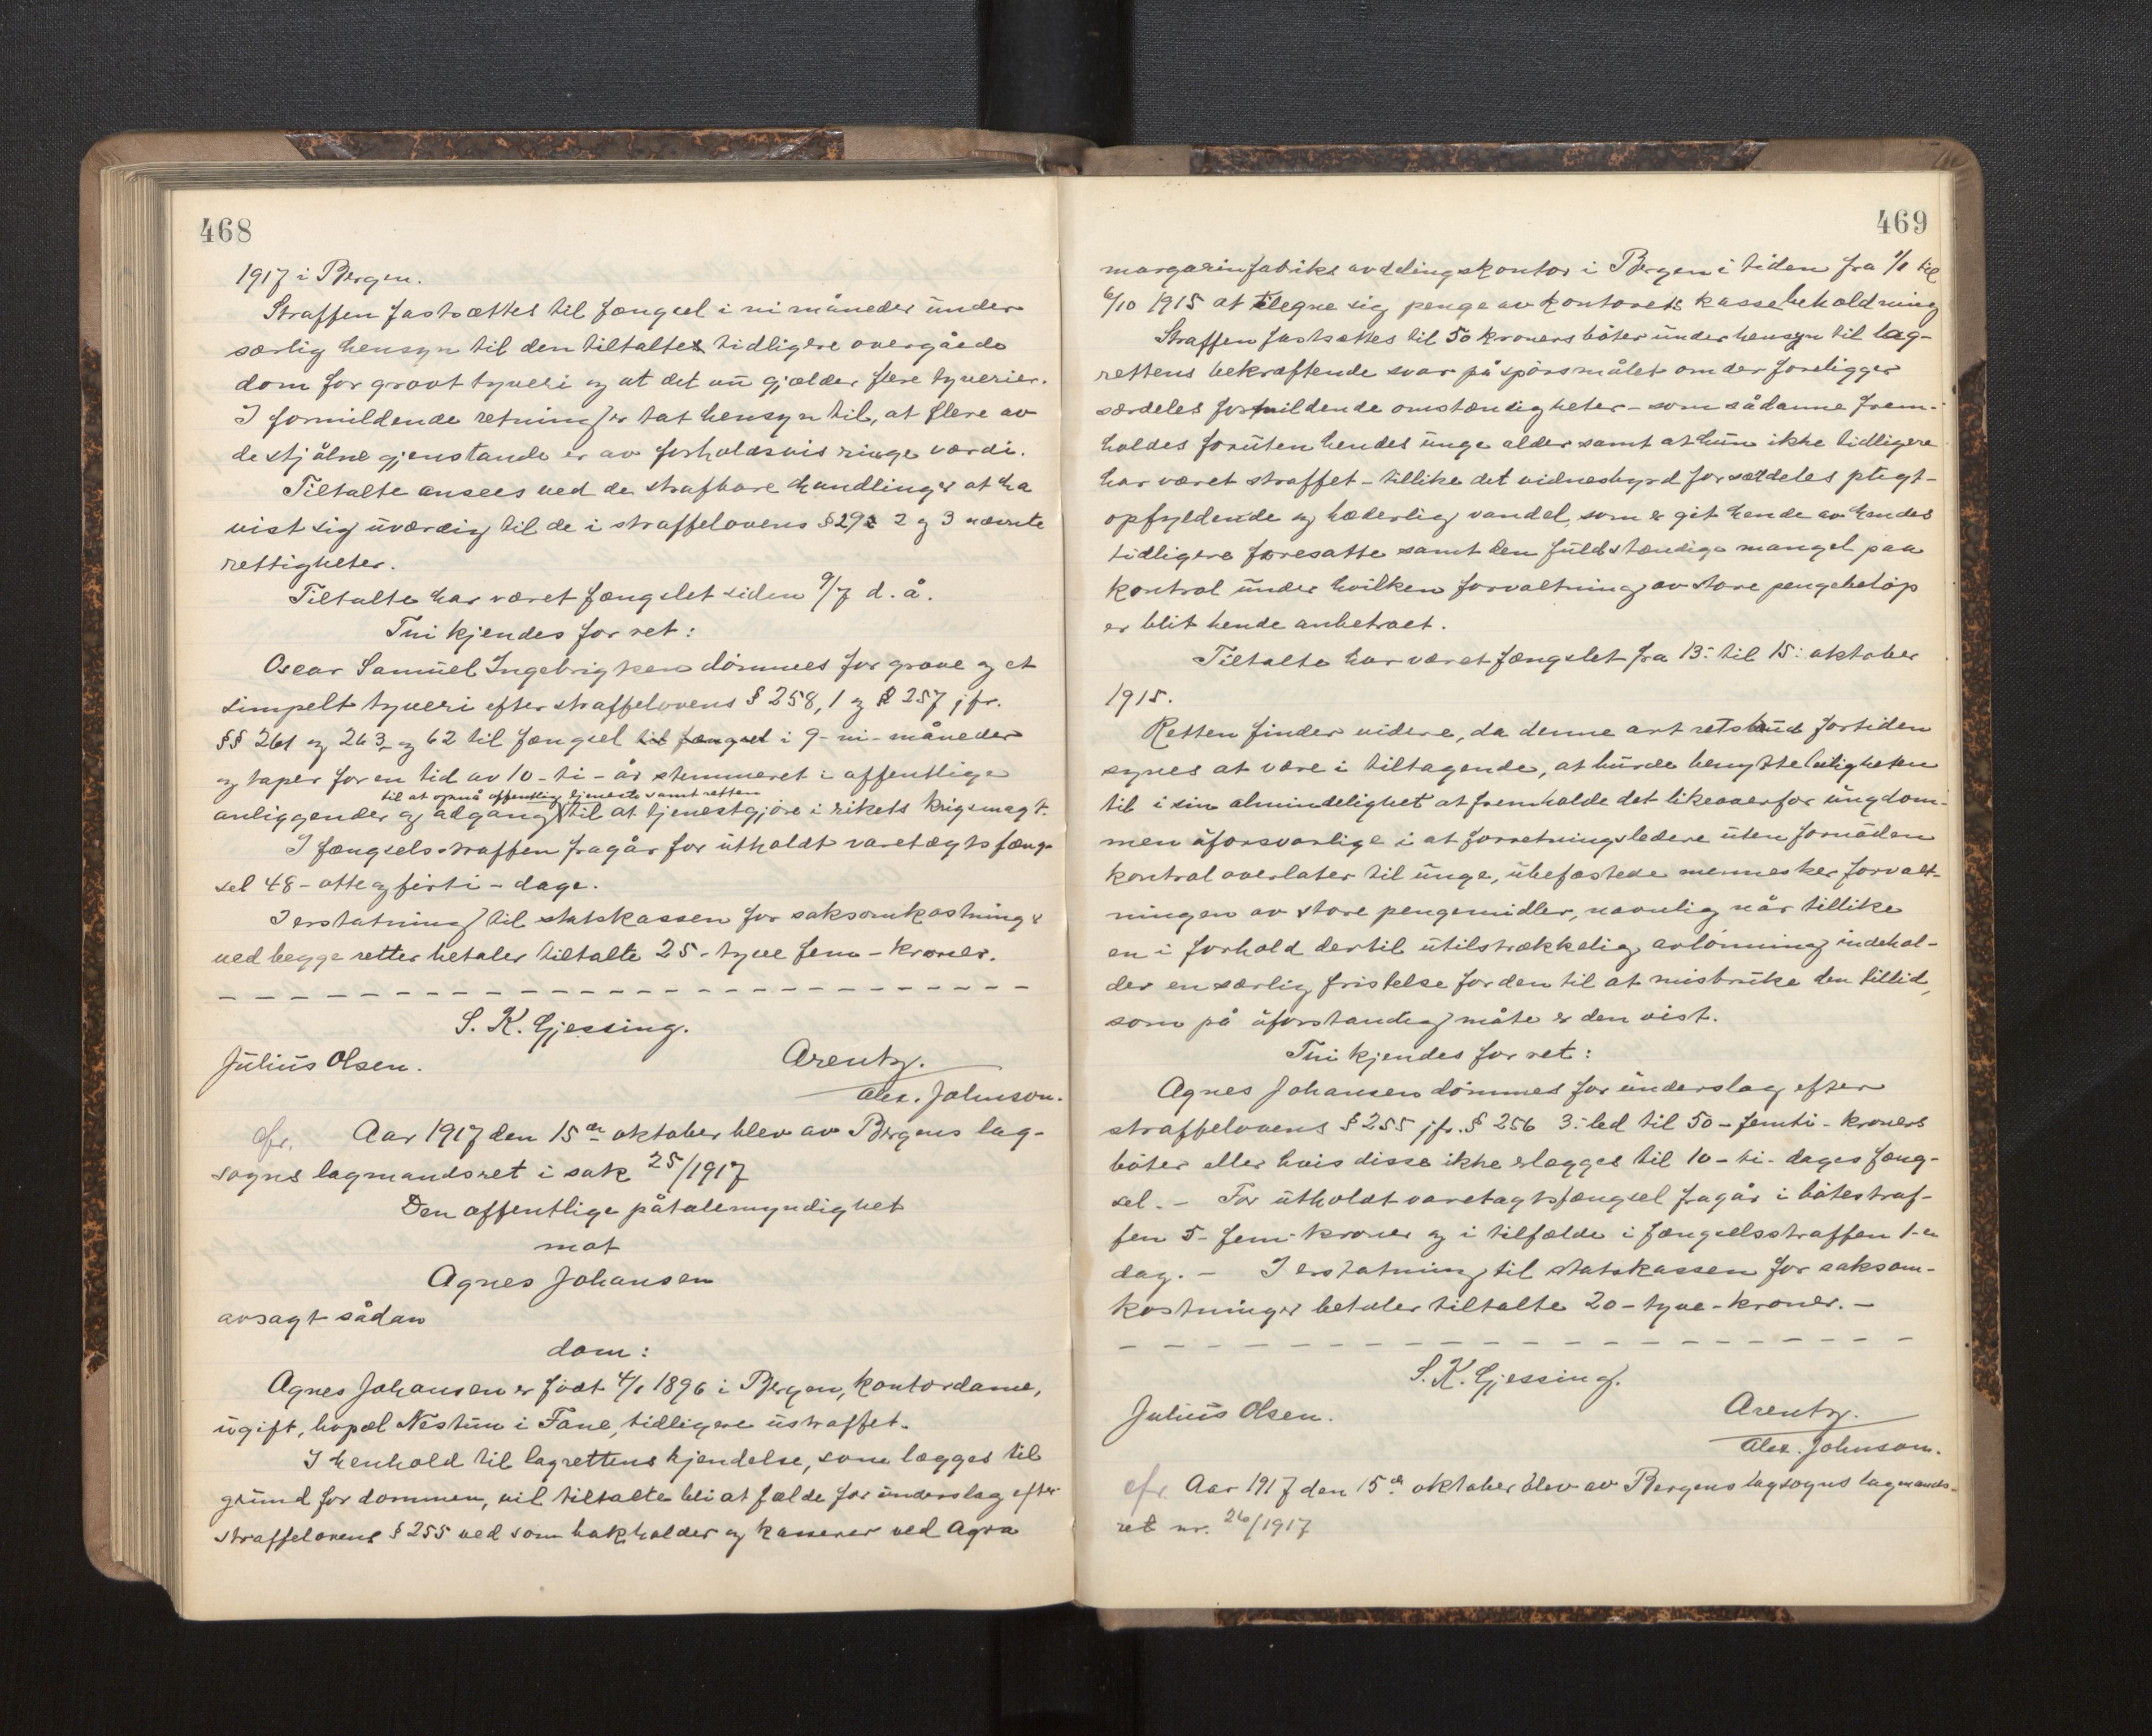 468
1917 i Bergen.
Straffen fastsættes til fængsel i ni måneder under
særlig hensyn til den tiltaltes tidligere overgåede
dom for grovt tyveri og at det nu gjælder flere tyverier.
I formildende retning er tat hensyn til, at flere av
de stjålne gjenstande er av forholdsvis ringe værdi.
Tiltalte ansees ved de strafbare handlinger at ha
vist sig uværdig til de i straffelovens § 29 2 og 3 nævnte
rettigheter.
Tiltalte har været fængslet siden 9/7 d. å.
Thi kjendes for ret:
Oscar Samuel Ingebrigtsen dömmes for grove og et
simpelt tyveri efter straffelovens § 258, 1 og § 257 jfr.
§§ 261 og 263 og 62 til fængsel til fængsel i 9 - ni - måneder
og taper for en tid av 10 - ti - år stemmeret i offentlige
til at opnå offentlig tjeneste samt retten
anliggender og adgang til at tjenestgjöre i rikets krigsmagt.
I fængselsstraffen fragår for utholdt varetægtsfæng-
sel 48 - otte og firti - dage.
I erstatning til statskassen for saksomkostninger
ved begge retter betaler tiltalte 25 - tyve fem - kroner.
S. K. Gjessing.
Julius Olsen. Arentz.
Alex. Johnson.
cfr. Aar 1917 den 15de oktober blev av Bergens lag-
sogns lagmandsret i sak 25/1917
Den offentlige påtalemyndighet
mot
Agnes Johansen
avsagt sådan
dom:
Agnes Johansen er födt 4/1 1896 i Bergen, kontordame,
ugift, bopæl Nestun i Fane, tidligere ustraffet.
I henhold til lagrettens kjendelse, som lægges til
grund for dommen, vil tiltalte bli at fælde for underslag efter
straffelovens § 255 ved som bokholder og kasserer ved Agra
469
margarinfabriks avdelingskontor i Bergen i tiden fra 1/1 til
6/10 1915 at tilegne sig penge av kontorets kassebeholdning
Straffen fastsættes til 50 kroners böter under hensyn til lag-
rettens bekræftende svar på spörsmålet om der foreligger
særdeles formildende omstændigheter - som sådanne frem-
holdes foruten hendes unge alder samt at hun ikke tidligere
har været straffet - tillike det vidnesbyrd for særdeles pligt-
opfyldende og hæderlig vandel, som er git hende av hendes
tidligere foresatte samt den fuldstændige mangel paa
kontrol under hvilken forvaltning av store pengebelöp
er blit hende anbetroet.
Tiltalte har været fængslet fra 13: til 15: oktober
1915.
Retten finder videre, da denne art retsbrud fortiden
synes at være i tiltagende, at burde benytte leiligheten
til i sin almindelighet at fremholde det likeoverfor ungdom-
men uforsvarlige i at forretningsledere uten fornöden
kontrol overlater til unge, ubefæstede mennesker forvalt-
ningen av store pengemidler, navnlig når tillike
en i forhold dertil utilstrækkelig avlönning indehol-
der en særlig fristelse for den til at misbruke den tillid,
som på uforstandig måte er den vist.
Thi kjendes for ret:
Agnes Johansen dömmes for underslag efter
straffelovens § 255 jfr. § 256 3: led til 50 - femti - kroners
böter eller hvis disse ikke erlægges til 10 - ti - dages fæng-
sel. - For utholdt varetægtsfængsel fragår i bötestraf-
fen 5 - fem - kroner og i tilfælde i fængselsstraffen 1 - en
dag. - I erstatning til statskassen for saksom-
kostninger betaler tiltalte 20 - tyve - kroner. -
S. K. Gjessing.
Julius Olsen. Arentz.
Alex. Johnson.
cfr. Aar 1917 den 15de oktober blev av Bergens lagsogns lagmands-
ret nr. 26/1917